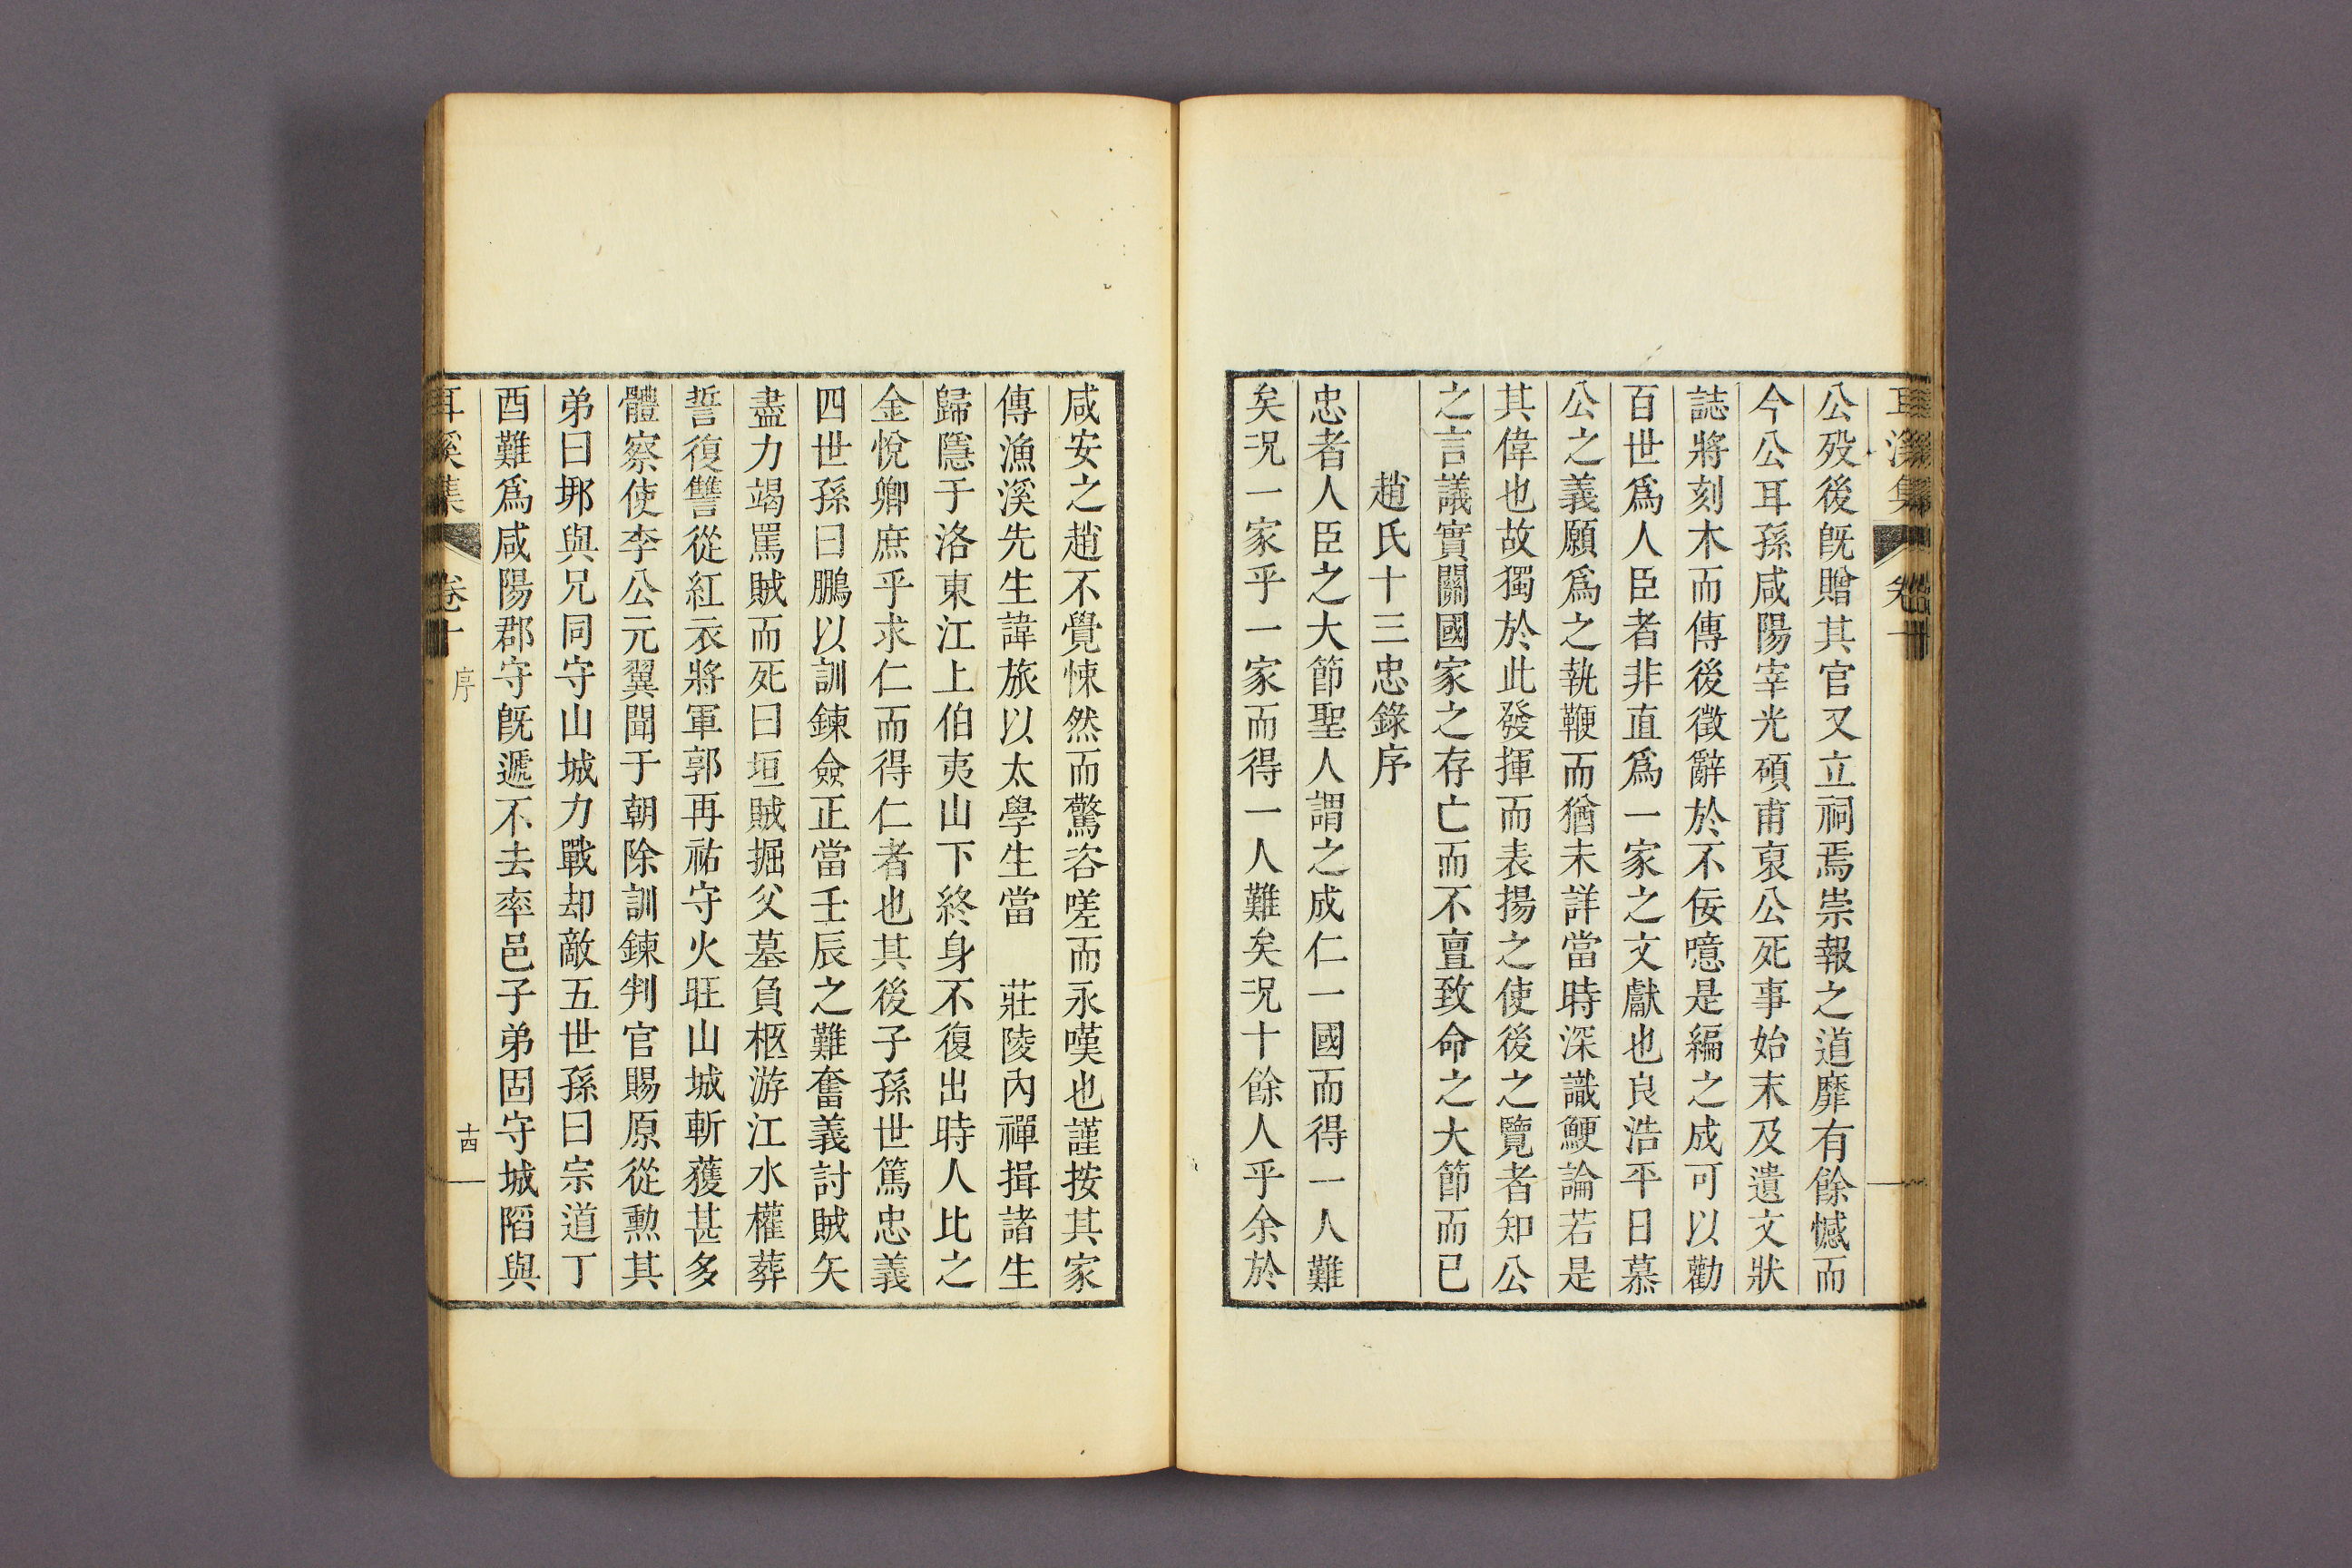 耳溪集 卷十
公歿後旣贈其官又立祠焉崇報之道靡有餘憾而
今公耳孫咸陽宰光碩甫裒公死事始末及遺文狀
誌將刻木而傳後徵辭於不佞噫是編之成可以勸
百世爲人臣者非直爲一家之文獻也良浩平日慕
公之義願爲之執鞭而猶未詳當時深識鯁論若是
其偉也故獨於此發揮而表揚之使後之覽者知公
之言議實關國家之存亡而不亶致命之大節而已
趙氏十三忠錄序
忠者人臣之大節聖人謂之成仁一國而得一人難
矣況一家乎一家而得一人難矣況十餘人乎余於
咸安之趙不覺悚然而驚咨嗟而永嘆也謹按其家
傳漁溪先生諱旅以太學生當 莊陵內禪揖諸生
歸隱于洛東江上伯夷山下終身不復出時人比之
金悅卿庶乎求仁而得仁者也其後子孫世篤忠義
四世孫曰鵬以訓鍊僉正當壬辰之難奮義討賊矢
盡力竭罵賊而死曰垣賊掘父墓負柩游江水權葬
誓復讐從紅衣將軍郭再祐守火旺山城斬獲甚多
體察使李公元翼聞于朝除訓鍊判官賜原從勲其
弟曰㻮與兄同守山城力戰却敵五世孫曰宗道丁
酉難爲咸陽郡守旣遞不去率邑子弟固守城陷與
耳溪集 卷十 序 十四